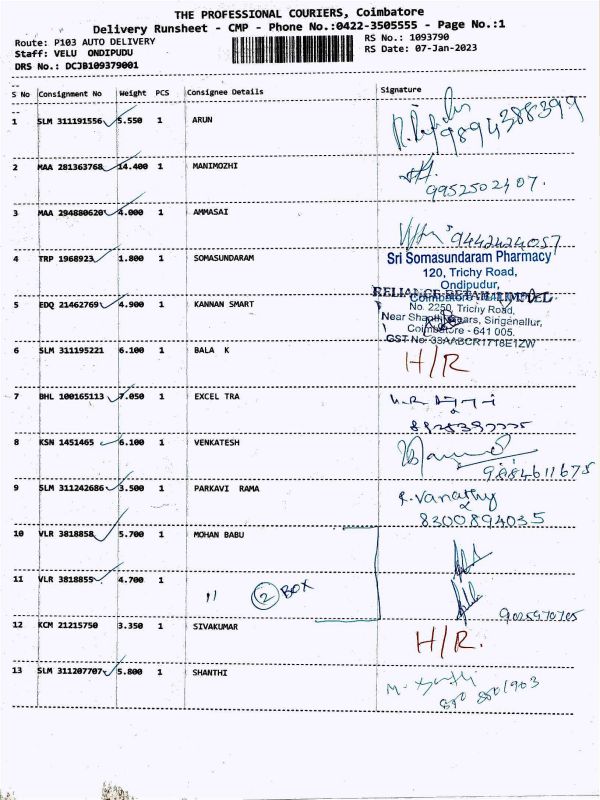 THE PROFESSIONAL COURIERS, Coimbatore
Delivery Runsheet - CMP - Phone No.:0422-3505555 - Page No.:1
Route: P103 AUTO DELIVERY RS No.: 1093790
Staff: VELU ONDIPUDU RS Date: 07-Jan-2023
DRS No.: DCJB109379001
S No Consignment No Weight PCS Consignee Details Signature
1 SLM 311191556 5.550 1 ARUN
9894388399
2 MAA 281363768 14.400 1 MANIMOZHI
9952502407.
3 MAA 294880620 4.000 1 AMMASAI
9442424057
4 TRP 1968923 1.800 1 SOMASUNDARAM
Sri Somasundaram Pharmacy
120, Trichy Road,
Ondipudur,
RELIANCE RETAIL LIMITED
5 EDQ 21462769 4.900 1 KANNAN SMART
No. 2250, Trichy Road,
Near Shanthi Gears, Singanallur,
Coimbatore - 641 005.
GST No: 33AABCR1718E1ZW
6 SLM 311195221 6.100 1 BALA K
H/R
7 BHL 100165113 7.050 1 EXCEL TRA
8 KSN 1451465 6.100 1 VENKATESH
9884611675
9 SLM 311242686 3.500 1 PARKAVI RAMA
R. Vanathy
8300894035
10 VLR 3818858 5.700 1 MOHAN BABU
11 VLR 3818855 4.700 1
" 2 BOX
9025970705
12 KCM 21215750 3.350 1 SIVAKUMAR
H/R.
13 SLM 311207707 5.800 1 SHANTHI